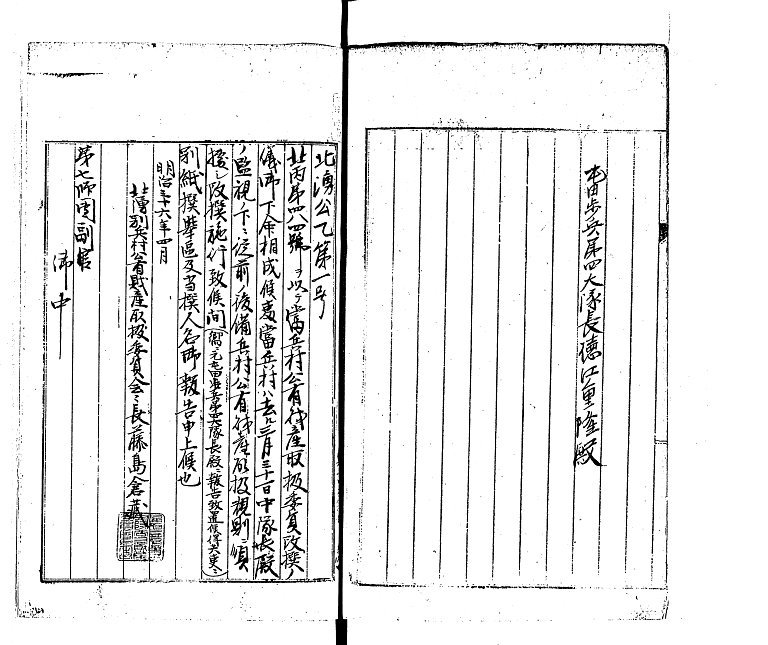 屯田歩兵第四大隊長徳江重隆殿
北湧公乙第一号
北丙第四八四號ヲ以テ當兵村公有財産取扱委員改撰ノ
儀御下命相成候處當兵村ハ去ル三月三十一日中隊長殿
ノ監視下ニ従前ノ後備兵村公有財産取扱規則ニ
據シ改撰施行致候間
別紙撰擧區及当撰人名御報告申上候也
明治三十六年四月
北湧別兵村公有財産取扱委員会々長藤島倉蔵
第七師団副官
御中